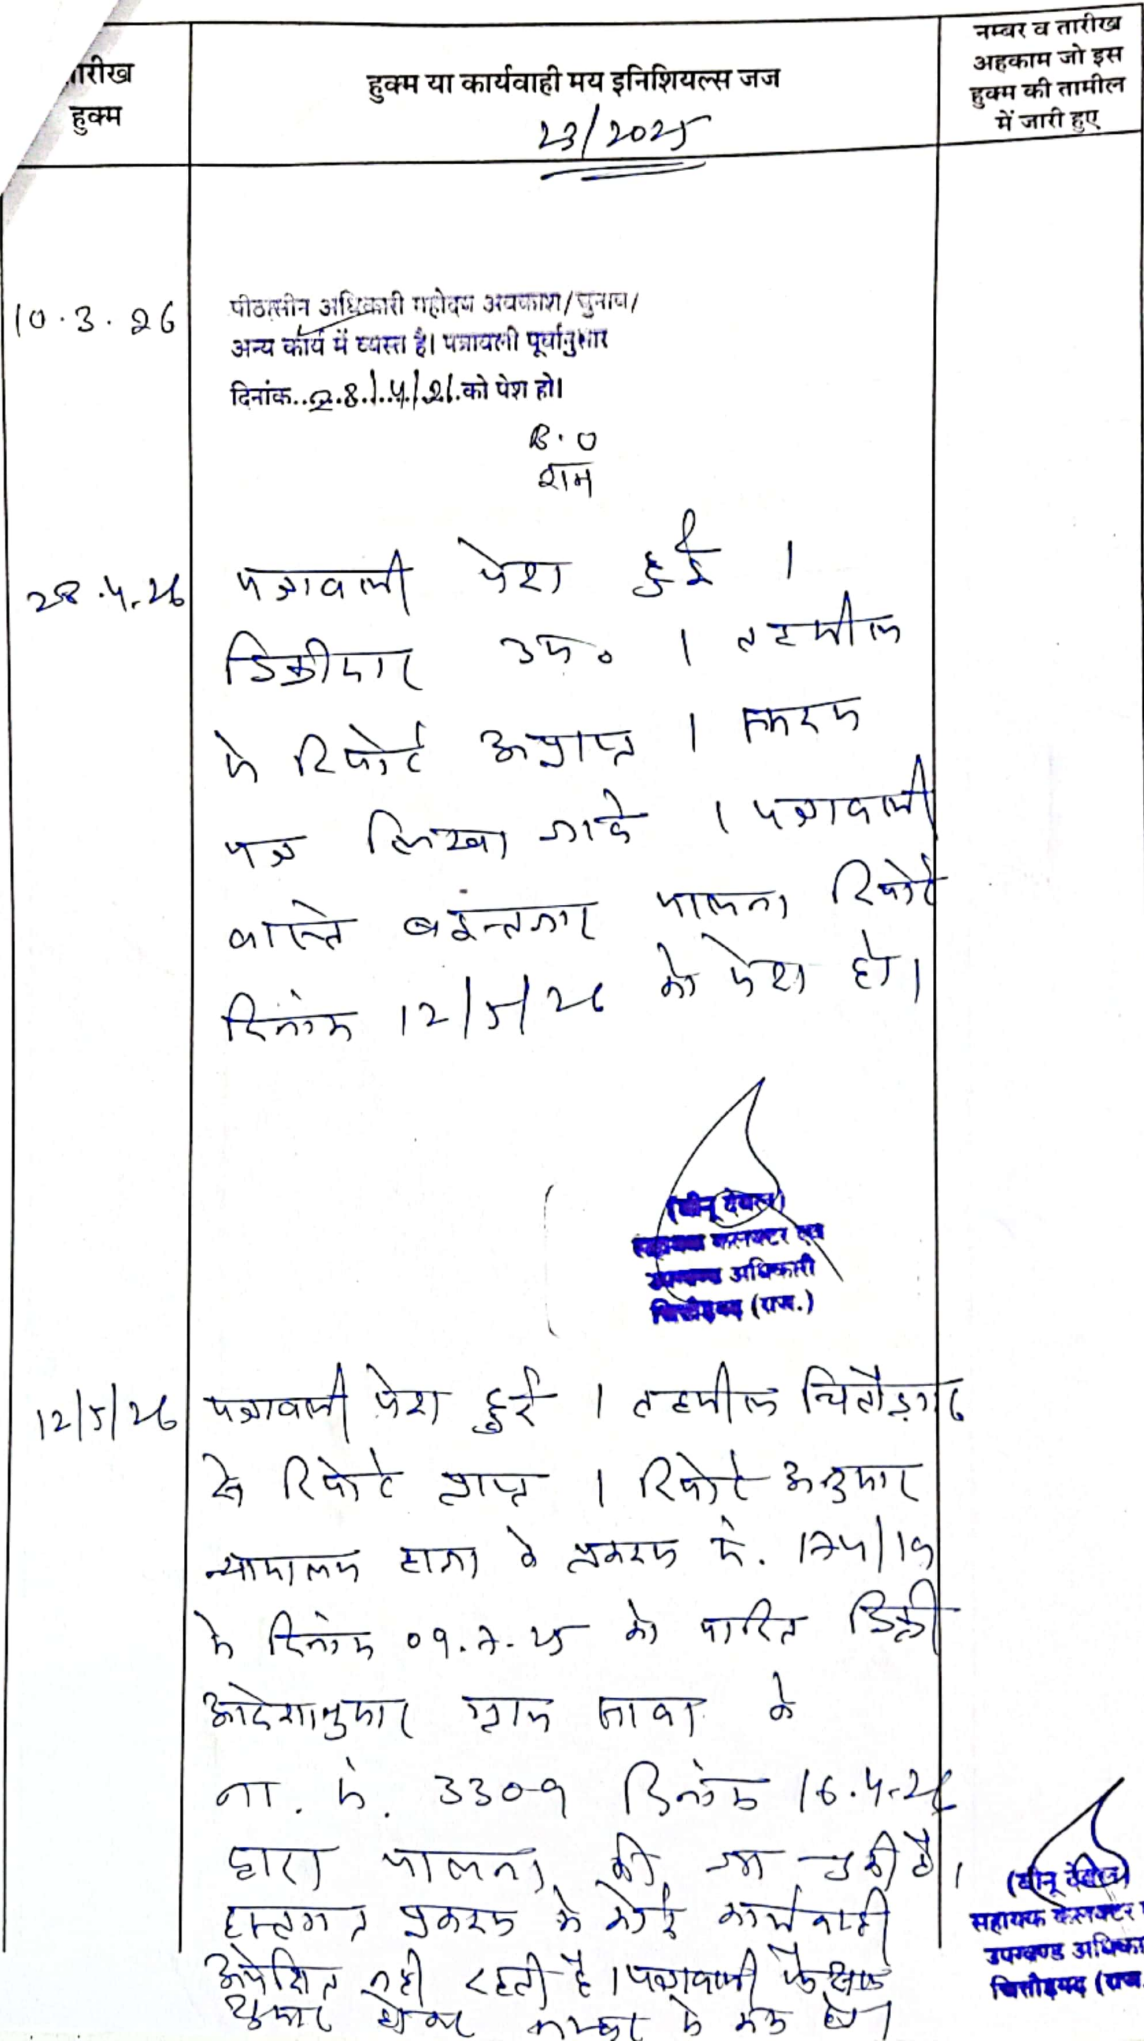 तारीख
हुक्म
हुक्म या कार्यवाही मय इनिशियल्स जज
23/2025
नम्बर व तारीख
अहकाम जो इस
हुक्म की तामील
में जारी हुए
10.3.26
पीठासीन अधिकारी महोदय अवकाश/चुनाव/
अन्य कार्य में व्यस्त है। पत्रावली पूर्वानुसार
दिनांक..28/4/26.को पेश हो।
B.O
राम
28.4.26
पत्रावली पेश हुई ।
डिक्रीदार उप० । तहसील
से रिपोर्ट अप्राप्त ।
पत्र लिखा जावे । पत्रावली
वास्ते बइन्तजार पालना रिपोर्ट
दिनांक 12/5/26 को पेश हो।
(बीनू देवल)
सहायक कलक्टर एवं
उपखण्ड अधिकारी
चित्तौड़गढ़ (राज.)
12/5/26
पत्रावली पेश हुई । तहसील चितौड़गढ
से रिपोर्ट प्राप्त । रिपोर्ट अनुसार
न्यायालय हाजा के प्रकरण सं. 174/19
में दिनांक 09.7.25 को पारित डिक्री
आदेशानुसार ग्राम के
ना. सं. 3309 दिनांक 16.4.26
द्वारा पालना की जा चुकी है ।
हस्तगत प्रकरण में कोई कार्यवाही
अपेक्षित नहीं रहती है । पत्रावली फैसल
शुमार होकर नम्बर से कम हो।
(बीनू देवल)
सहायक कलक्टर
उपखण्ड अधिका
चित्तौड़गढ़ (राज